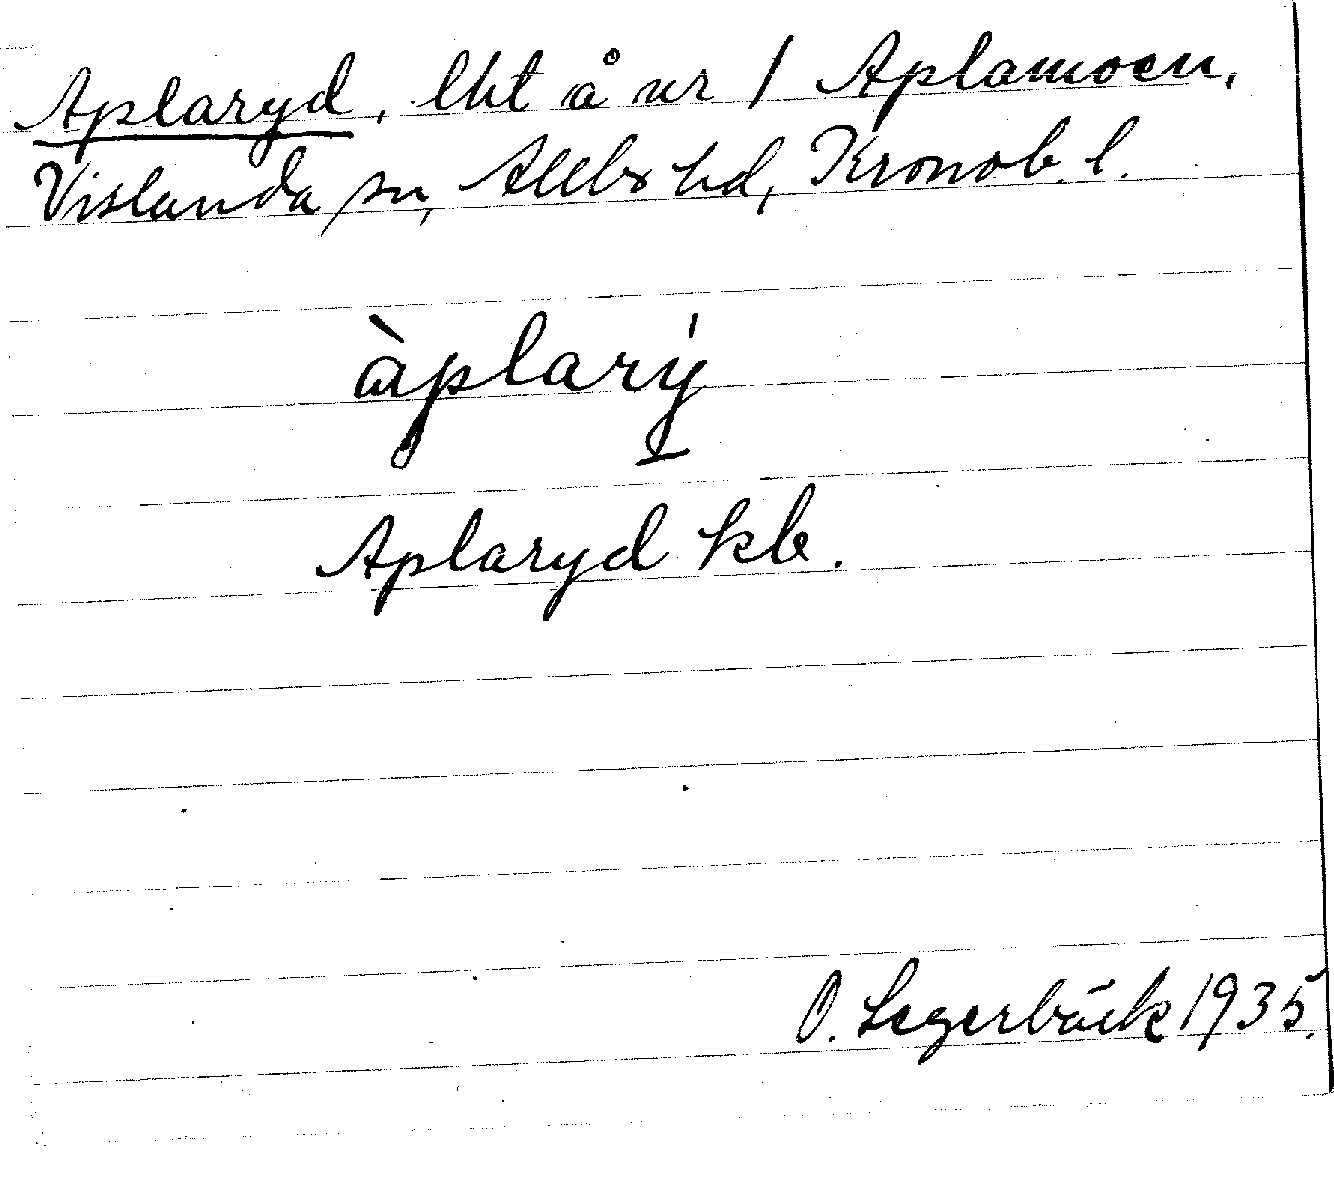 Aplaryd, lht å nr 1 Aplamoen,
Vislanda sn, Allbo hd, Kronob. l.
àplarý
Aplaryd kb.
O. Segerbäck 1935.